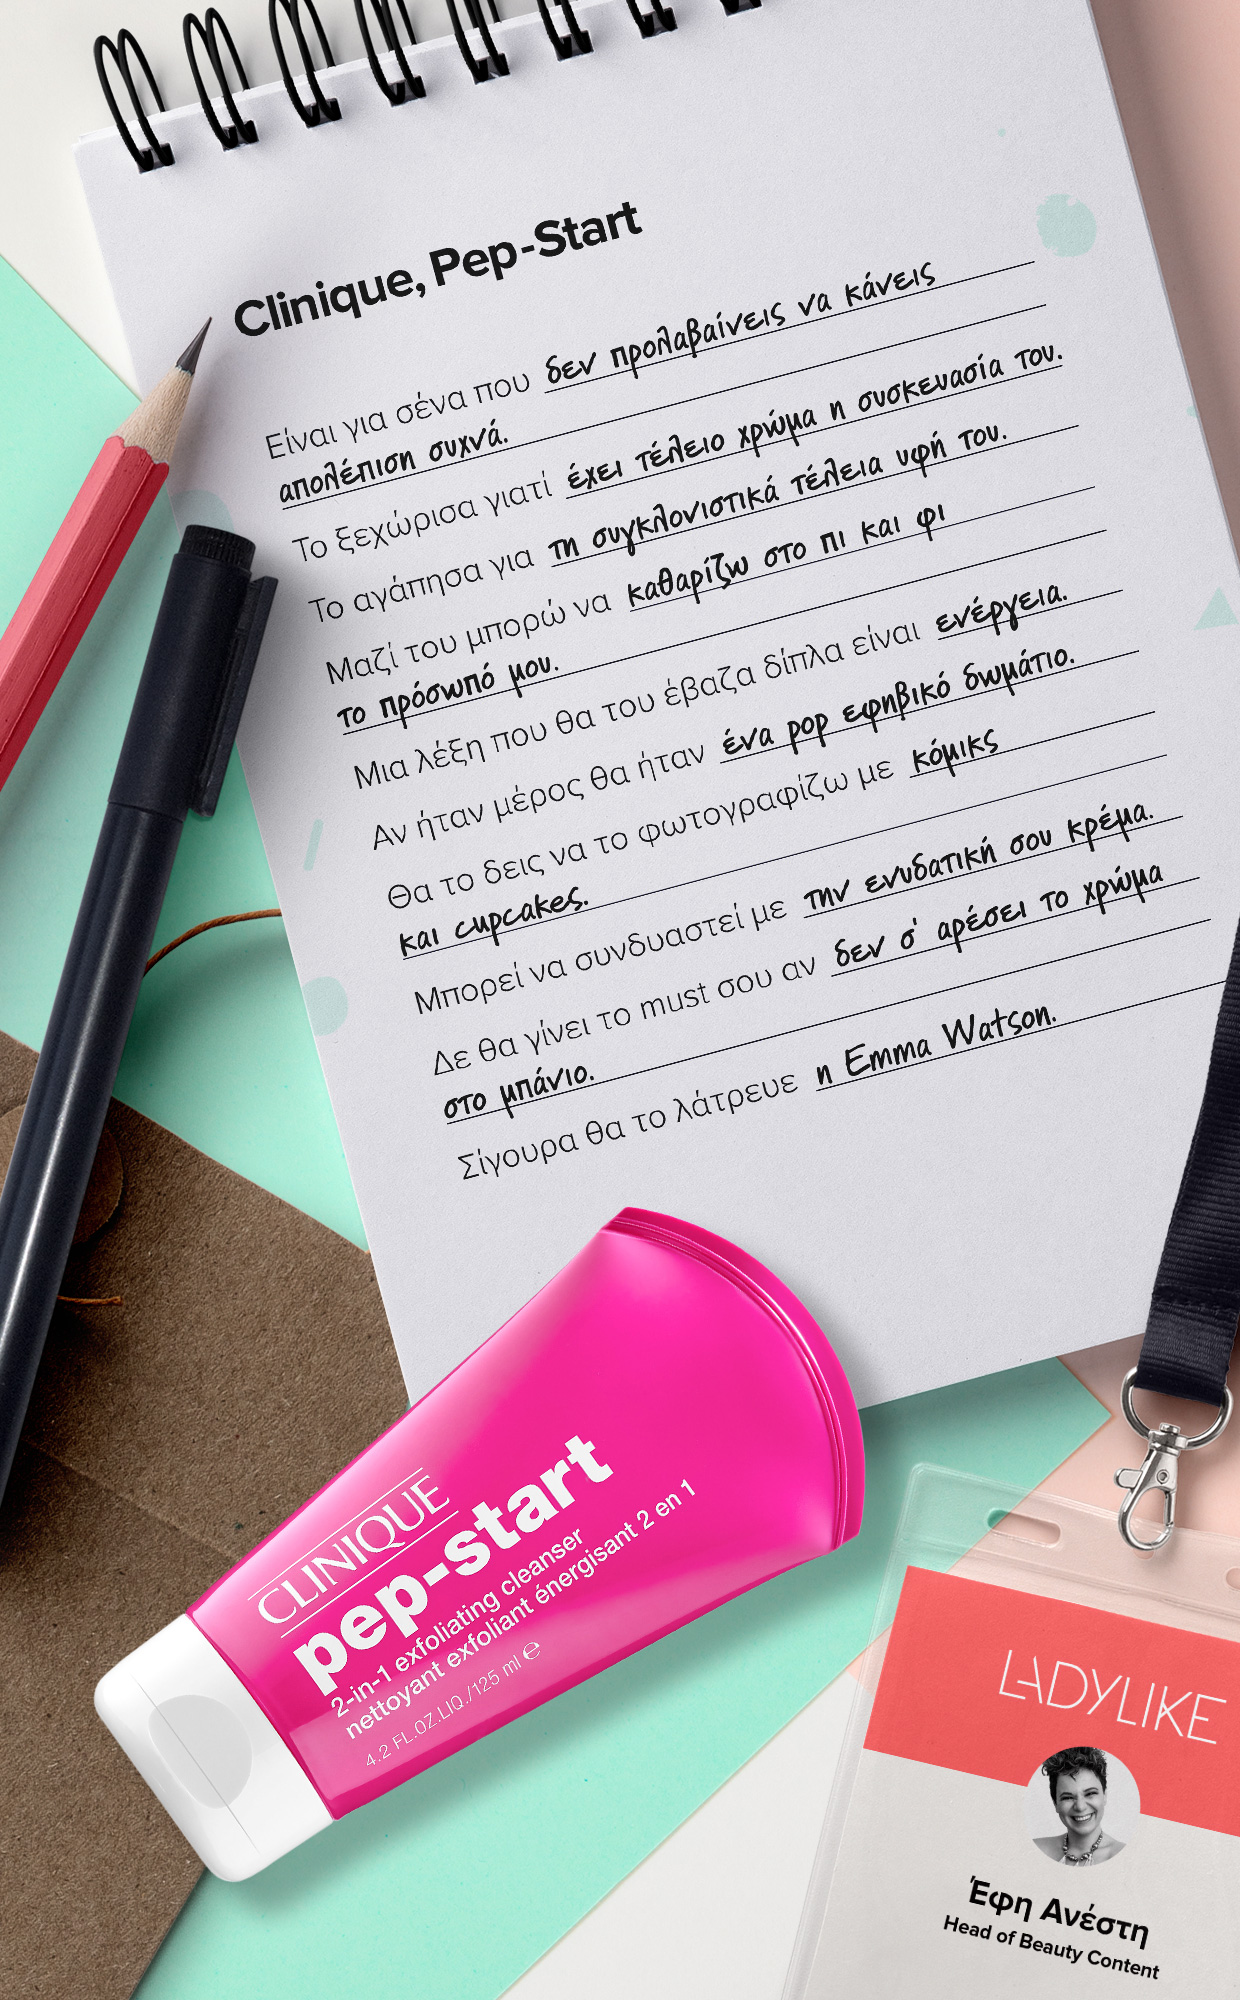 Clinique, Pep-Start
Είναι για σένα που δεν προλαβαίνεις να κάνεις
απολέπιση συχνά.
Το ξεχώρισα γιατί έχει τέλειο χρώμα η συσκευασία του.
Το αγάπησα για τη συγκλονιστικά τέλεια υφή του.
Μαζί του μπορώ να καθαρίζω στο πι και φι
το πρόσωπό μου.
Μια λέξη που θα του έβαζα δίπλα είναι ενέργεια.
Αν ήταν μέρος θα ήταν ένα pop εφηβικό δωμάτιο.
Θα το δεις να το φωτογραφίζω με κόμικς
και cupcakes.
Μπορεί να συνδυαστεί με την ενυδατική σου κρέμα.
Δε θα γίνει το must σου αν δεν σ' αρέσει το χρώμα
στο μπάνιο.
Σίγουρα θα το λάτρευε η Emma Watson.
CLINIQUE
pep-start
2-in-1 exfoliating cleanser
nettoyant exfoliant énergisant 2 en 1
4.2 FL.OZ.LIQ./125 ml ℮
LADYLIKE
Έφη Ανέστη
Head of Beauty Content